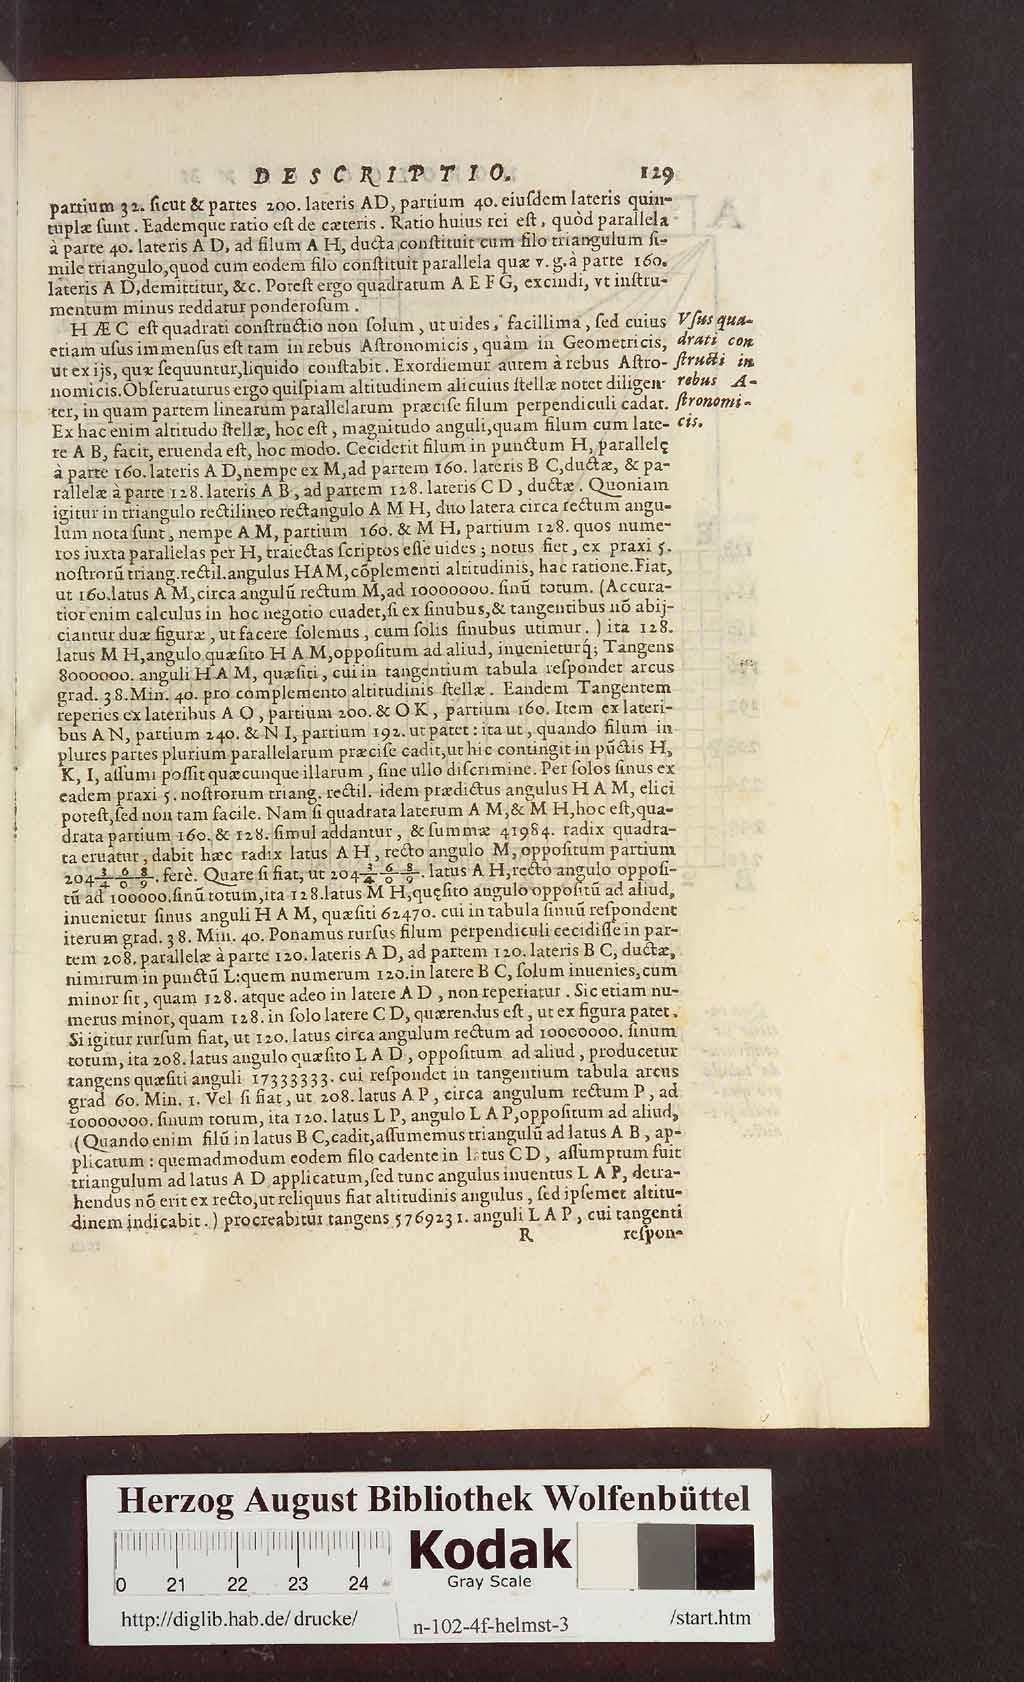 DESCRIPTIO. 129
partium 32. ſicut & partes 200. lateris AD, partium 40. eiuſdem lateris quin-
tuplæ ſunt. Eademque ratio eſt de cæteris. Ratio huius rei eſt, quòd parallela
à parte 40. lateris A D, ad filum A H, ducta conſtituit cum filo triangulum ſi-
mile triangulo,quod cum eodem filo conſtituit parallela quæ v. g.à parte 160.
lateris A D,demittitur, &c. Poteſt ergo quadratum A E F G, excindi, vt inſtru-
mentum minus reddatur ponderoſum.
HÆC eſt quadrati conſtructio non ſolum, ut uides, facillima, ſed cuius
etiam uſus immenſus eſt tam in rebus Aſtronomicis, quàm in Geometricis,
ut ex ijs, quæ ſequuntur,liquido conſtabit. Exordiemur autem à rebus Aſtro-
nomicis.Obſeruaturus ergo quiſpiam altitudinem alicuius ſtellæ notet diligen-
ter, in quam partem linearum parallelarum præciſe filum perpendiculi cadat.
Ex hac enim altitudo ſtellæ, hoc eſt, magnitudo anguli,quam filum cum late-
re A B, facit, eruenda eſt, hoc modo. Ceciderit filum in punctum H, parallelę
à parte 160. lateris A D,nempe ex M,ad partem 160. lateris B C,ductæ, & pa-
rallelæ à parte 128. lateris A B, ad partem 128. lateris C D, ductæ. Quoniam
igitur in triangulo rectilineo rectangulo A M H, duo latera circa rectum angu-
lum nota ſunt, nempe A M, partium 160. & M H, partium 128. quos nume-
ros iuxta parallelas per H, traiectas ſcriptos eſſe uides; notus fiet, ex praxi 5.
noſtrorū triang.rectil.angulus HAM,cōplementi altitudinis, hac ratione.Fiat,
ut 160.latus A M,circa angulū rectum M,ad 10000000. ſinū totum. (Accura-
tior enim calculus in hoc negotio euadet,ſi ex ſinubus,& tangentibus nō abij-
ciantur duæ figuræ, ut facere ſolemus, cum ſolis ſinubus utimur.) ita 128.
latus M H,angulo quæſito H A M,oppoſitum ad aliud, inuenieturq́; Tangens
8000000. anguli H A M, quæſiti, cui in tangentium tabula reſpondet arcus
grad. 38.Min. 40. pro complemento altitudinis ſtellæ. Eandem Tangentem
reperies ex lateribus A O, partium 200. & O K, partium 160. Item ex lateri-
bus A N, partium 240. & N I, partium 192. ut patet: ita ut, quando filum in
plures partes plurium parallelarum præciſe cadit,ut hic contingit in pūctis H,
K, I, aſſumi poſſit quæcunque illarum, ſine ullo diſcrimine. Per ſolos ſinus ex
eadem praxi 5. noſtrorum triang. rectil. idem prædictus angulus H A M, elici
poteſt,ſed non tam facile. Nam ſi quadrata laterum A M,& M H,hoc eſt,qua-
drata partium 160. & 128. ſimul addantur, & ſummæ 41984. radix quadra-
ta eruatur, dabit hæc radix latus A H, recto angulo M, oppoſitum partium
204 3 6 8/4 0 9. ferè. Quare ſi fiat, ut 204 3 6 8/4 0 9. latus A H,recto angulo oppoſi-
tū ad 100000.ſinū totum,ita 128.latus M H,quęſito angulo oppoſitū ad aliud,
inuenietur ſinus anguli H A M, quæſiti 62470. cui in tabula ſinuū reſpondent
iterum grad. 38. Min. 40. Ponamus rurſus filum perpendiculi cecidiſſe in par-
tem 208. parallelæ à parte 120. lateris A D, ad partem 120. lateris B C, ductæ,
nimirum in punctū L:quem numerum 120.in latere B C, ſolum inuenies,cum
minor ſit, quam 128. atque adeo in latere A D, non reperiatur. Sic etiam nu-
merus minor, quam 128. in ſolo latere C D, quærendus eſt, ut ex figura patet.
Si igitur rurſum fiat, ut 120. latus circa angulum rectum ad 10000000. ſinum
totum, ita 208. latus angulo quæſito L A D, oppoſitum ad aliud, producetur
tangens quæſiti anguli 17333333. cui reſpondet in tangentium tabula arcus
grad 60. Min. 1. Vel ſi fiat, ut 208. latus A P, circa angulum rectum P, ad
10000000. ſinum totum, ita 120. latus L P, angulo L A P,oppoſitum ad aliud,
(Quando enim filū in latus B C,cadit,aſſumemus triangulū ad latus A B, ap-
plicatum: quemadmodum eodem filo cadente in latus C D, aſſumptum fuit
triangulum ad latus A D applicatum,ſed tunc angulus inuentus L A P, detra-
hendus nō erit ex recto,ut reliquus fiat altitudinis angulus, ſed ipſemet altitu-
dinem indicabit.) procreabitur tangens 5769231. anguli L A P, cui tangenti
R reſpon-
Vſus qua-
drati con
ſtructi in
rebus A-
ſtronomi-
cis.
Herzog August Bibliothek Wolfenbüttel
0 21 22 23 24
Kodak
Gray Scale
http://diglib.hab.de/drucke/ n-102-4f-helmst-3 /start.htm